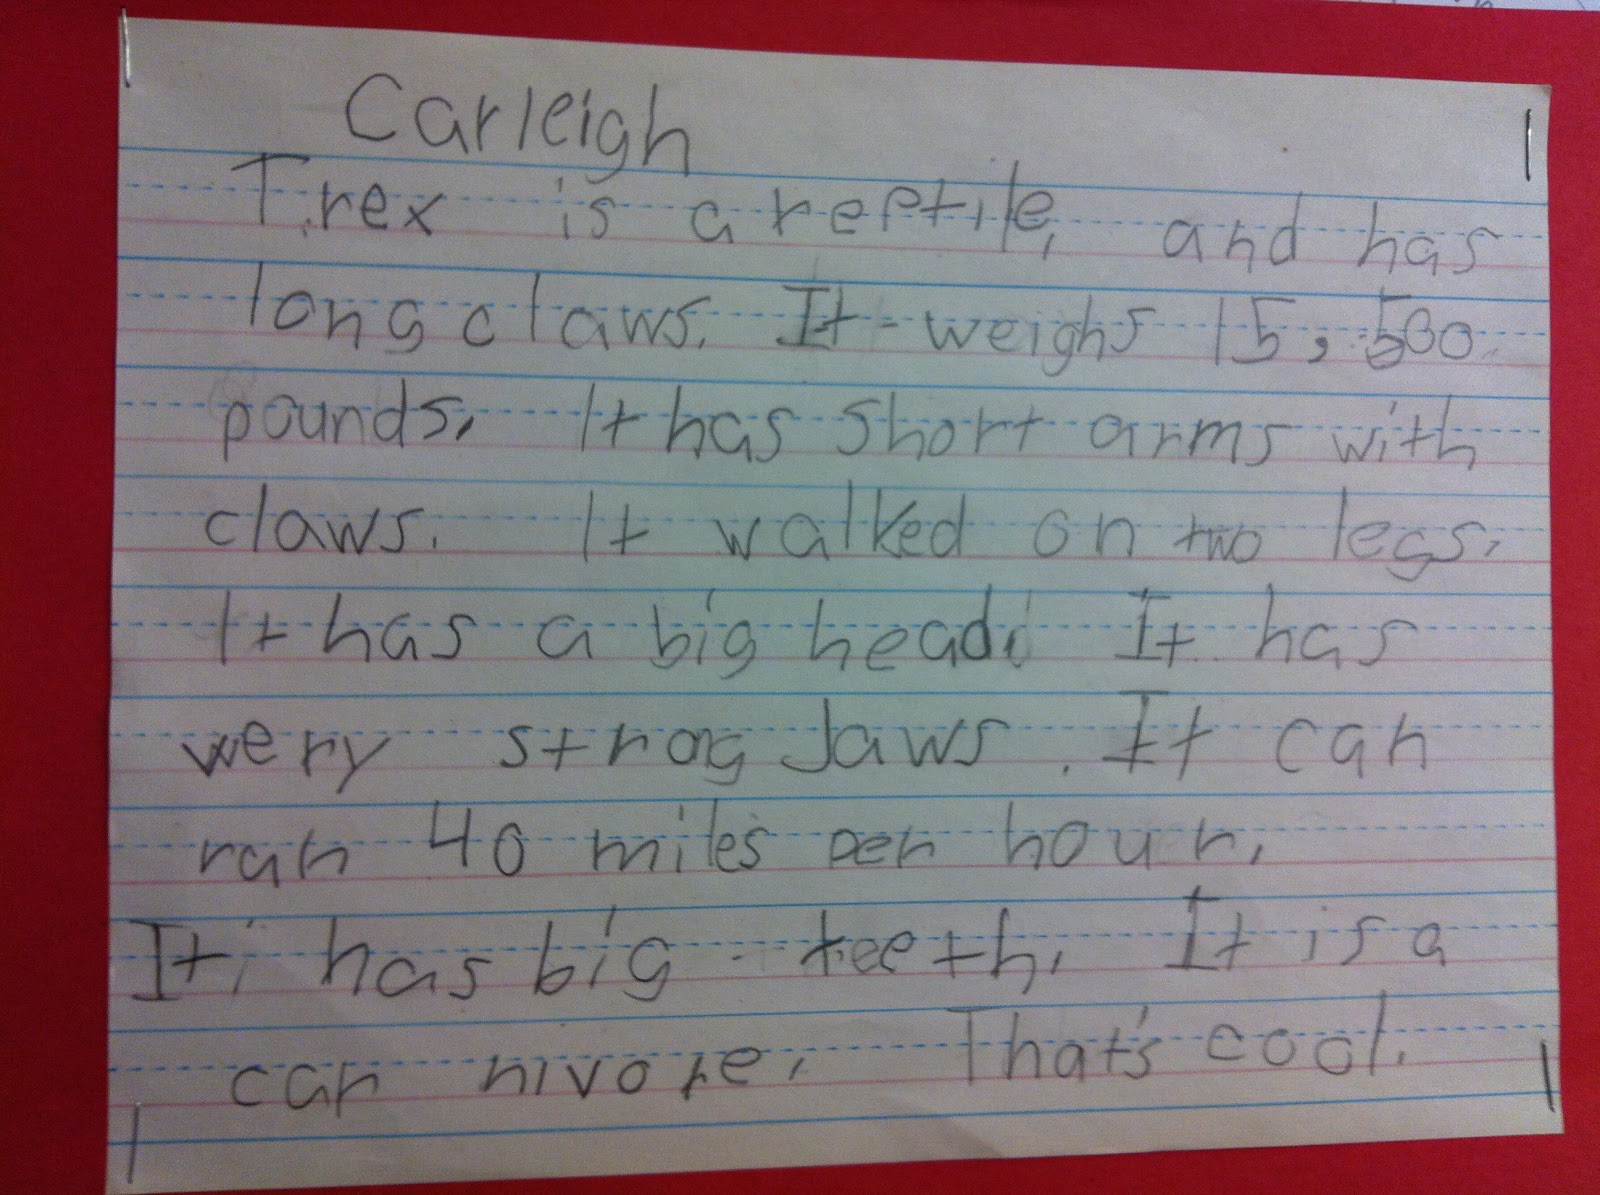 Carleigh
T.rex is a reptile, and has
long claws. It weighs 15,500
pounds. It has short arms with
claws. It walked on two legs.
It has a big head. It has
wery strong Jaws. It can
ran 40 miles per hour.
It has big teeth. It is a
car nivore. That's cool.